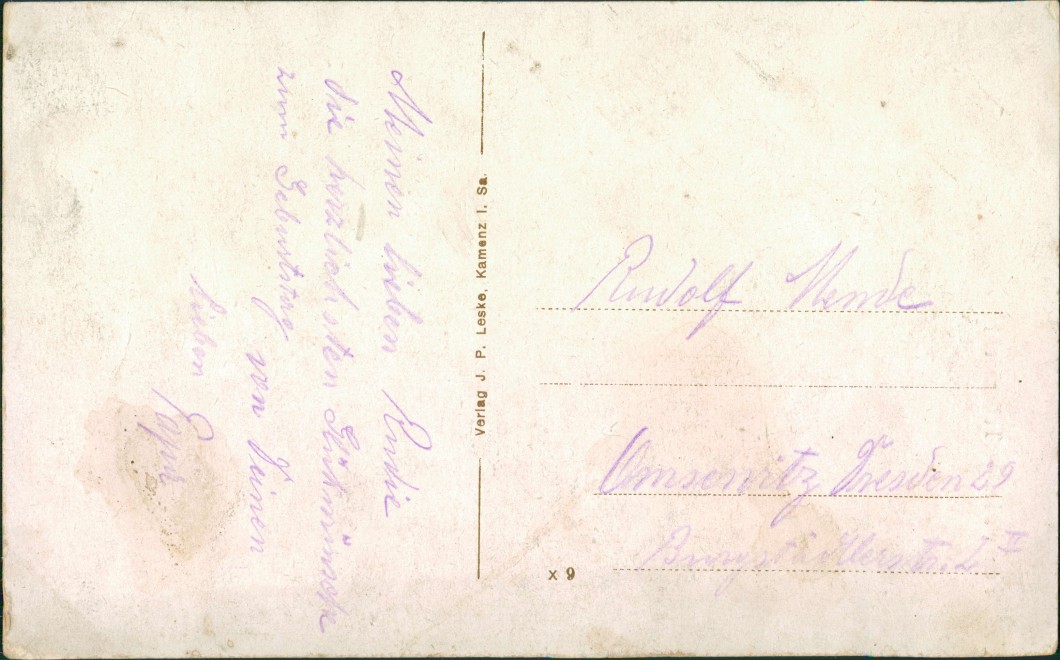 Meinen lieben Rudie
die herzlichsten Glückwünsche
zum Geburtstag
von Deinen
lieben Papa
Verlag J. P. Leske, Kamenz i. Sa.
Rudolf Mende
Omsewitz Dresden 29
X 9